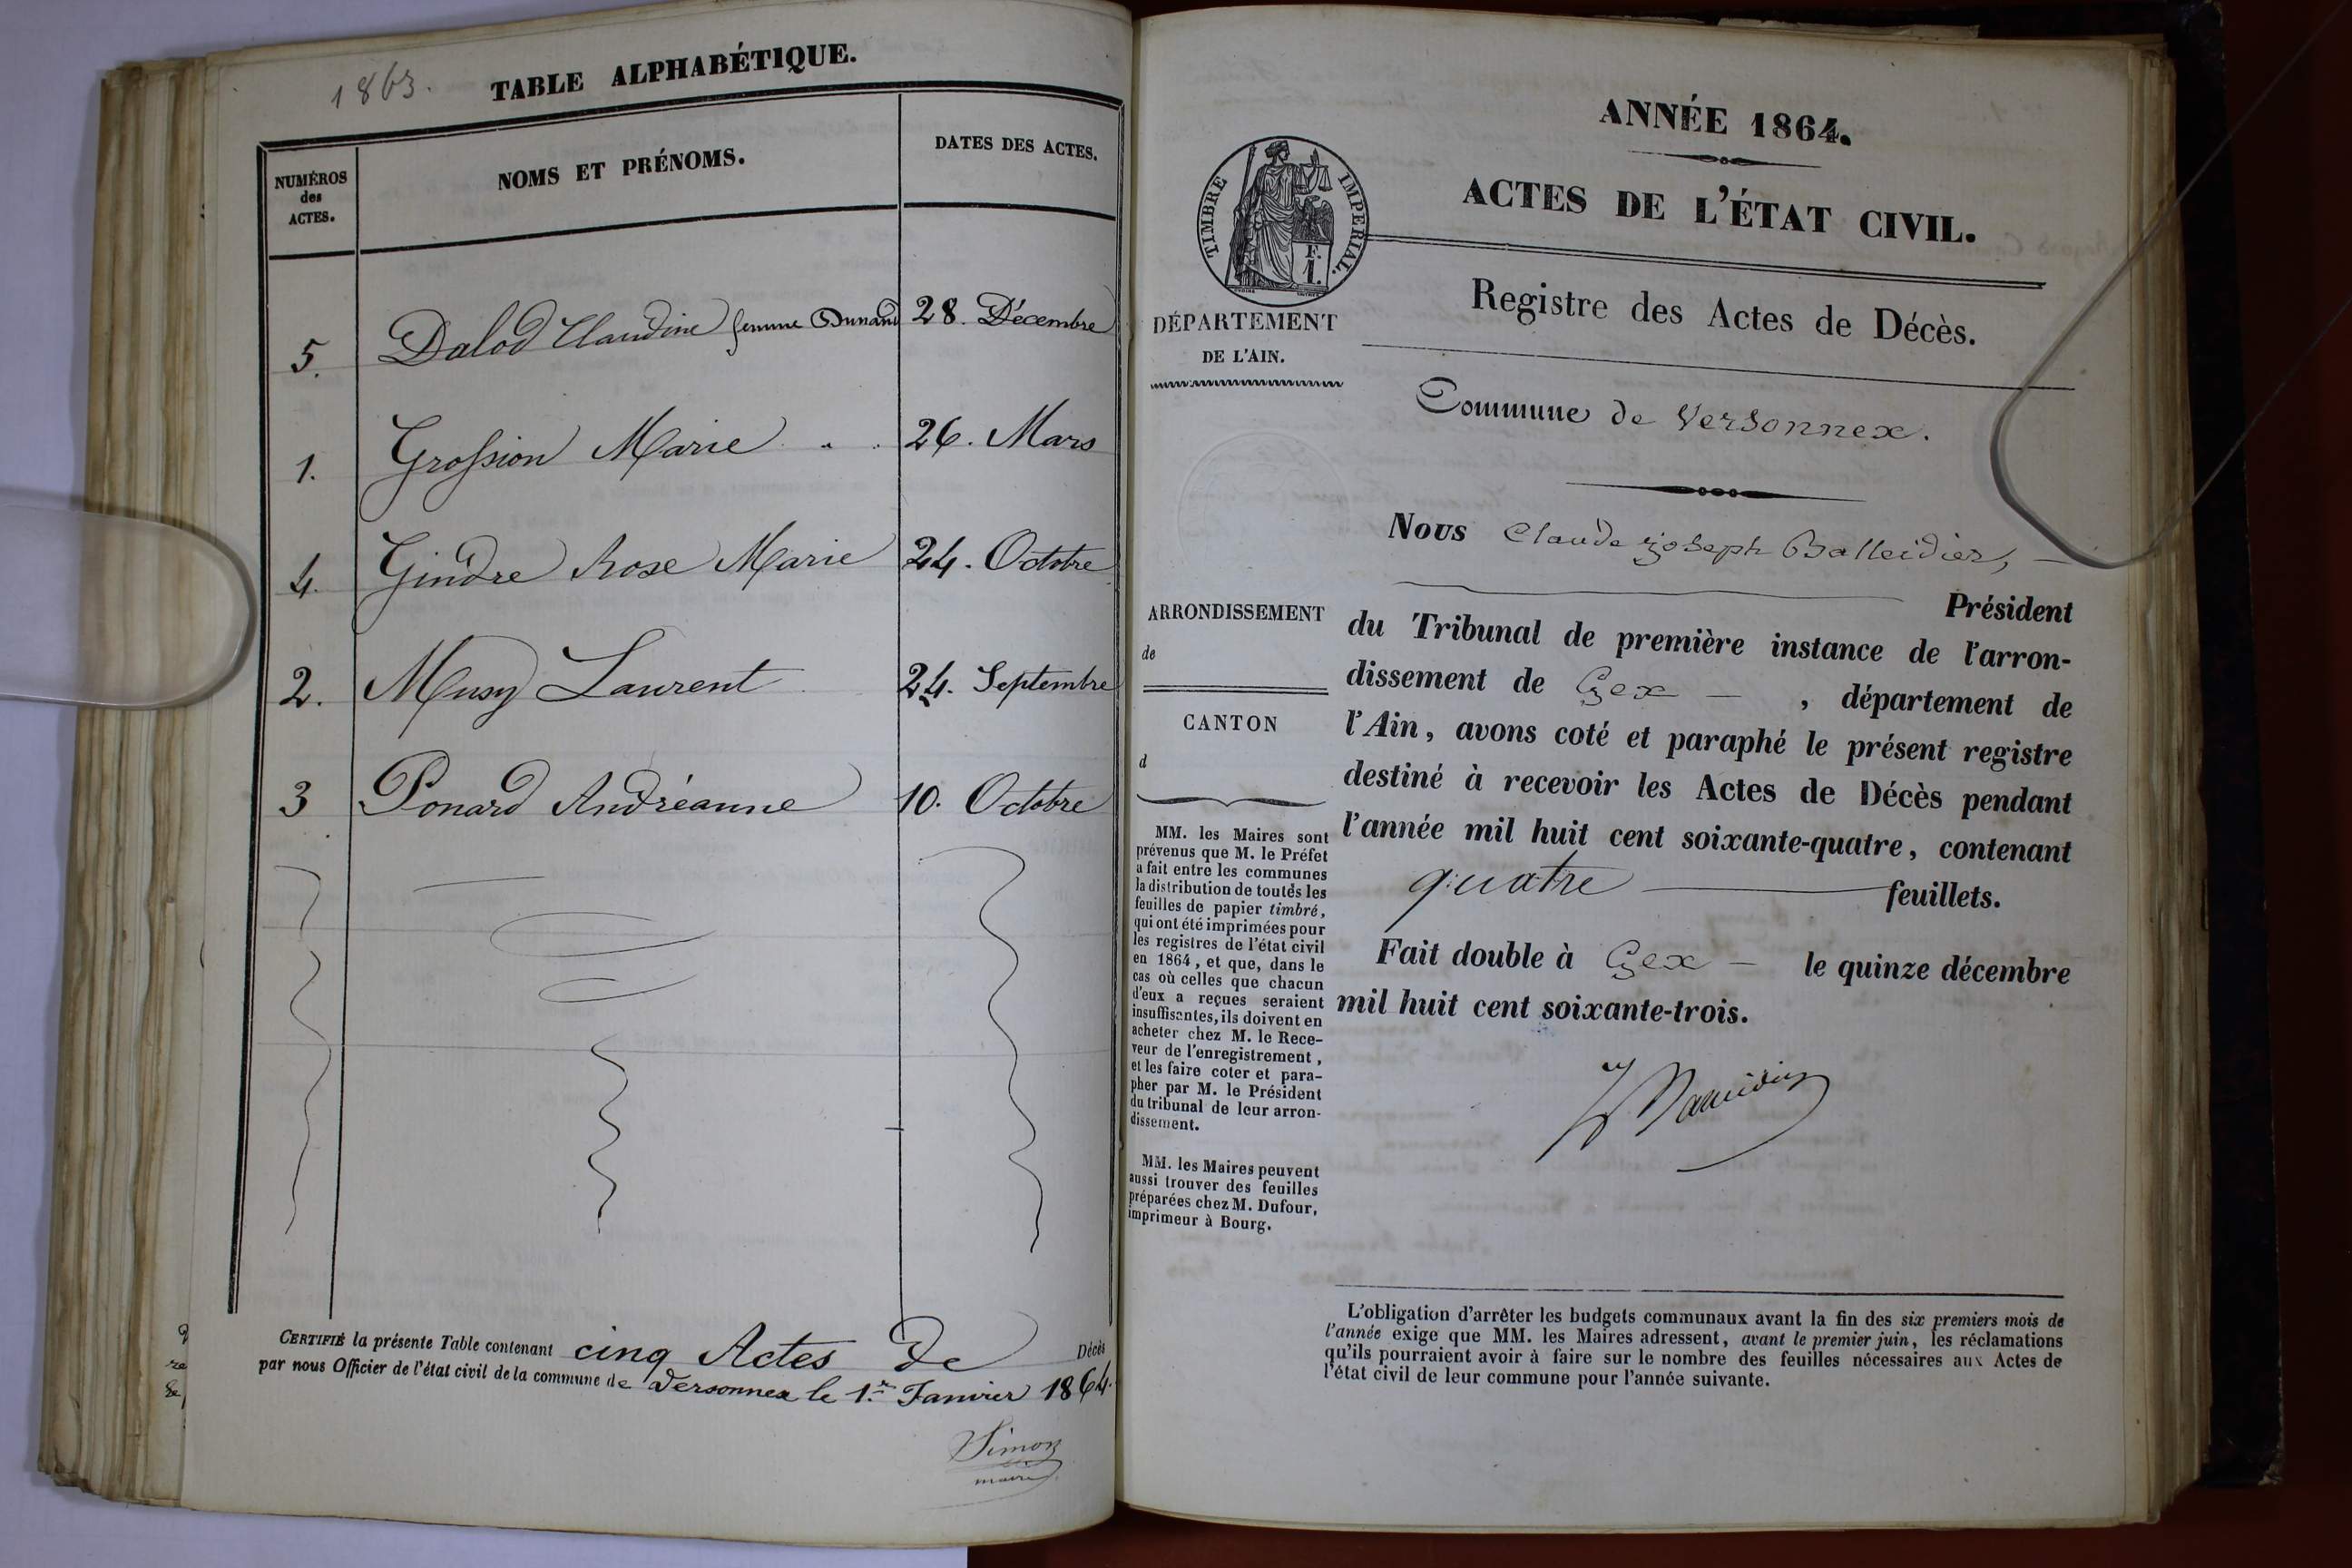 1863.
TABLE ALPHABÉTIQUE.
NUMÉROS
des
ACTES.
NOMS ET PRÉNOMS.
DATES DES ACTES.
5. Dalod Claudine femme Dunand 28. Décembre
1. Grossion Marie 26. Mars
4. Gindre Rose Marie 24. Octobre
2. Musy Laurent 24. Septembre
3 Ponard Andréanne 10. Octobre
CERTIFIÉ la présente Table contenant cinq Actes de Décès
par nous Officier de l'état civil de la commune de Versonnex le 1.er Janvier 1864.
Simon
maire
ANNÉE 1864.
ACTES DE L'ÉTAT CIVIL.
TIMBRE IMPÉRIAL.
F.
1.
DÉPARTEMENT
DE L'AIN.
Registre des Actes de Décès.
Commune de Versonnex.
Nous Claude Joseph Balleidier,
Président
du Tribunal de première instance de l'arron-
dissement de Gex - , département de
l'Ain, avons coté et paraphé le présent registre
destiné à recevoir les Actes de Décès pendant
l'année mil huit cent soixante-quatre, contenant
quatre feuillets.
Fait double à Gex - le quinze décembre
mil huit cent soixante-trois.
ARRONDISSEMENT
de
CANTON
d
MM. les Maires sont
prévenus que M. le Préfet
a fait entre les communes
la distribution de toutes les
feuilles de papier timbré,
qui ont été imprimées pour
les registres de l'état civil
en 1864, et que, dans le
cas où celles que chacun
d'eux a reçues seraient
insuffisantes, ils doivent en
acheter chez M. le Rece-
veur de l'enregistrement,
et les faire coter et para-
pher par M. le Président
du tribunal de leur arron-
dissement.
MM. les Maires peuvent
aussi trouver des feuilles
préparées chez M. Dufour,
imprimeur à Bourg.
L'obligation d'arrêter les budgets communaux avant la fin des six premiers mois de
l'année exige que MM. les Maires adressent, avant le premier juin, les réclamations
qu'ils pourraient avoir à faire sur le nombre des feuilles nécessaires aux Actes de
l'état civil de leur commune pour l'année suivante.